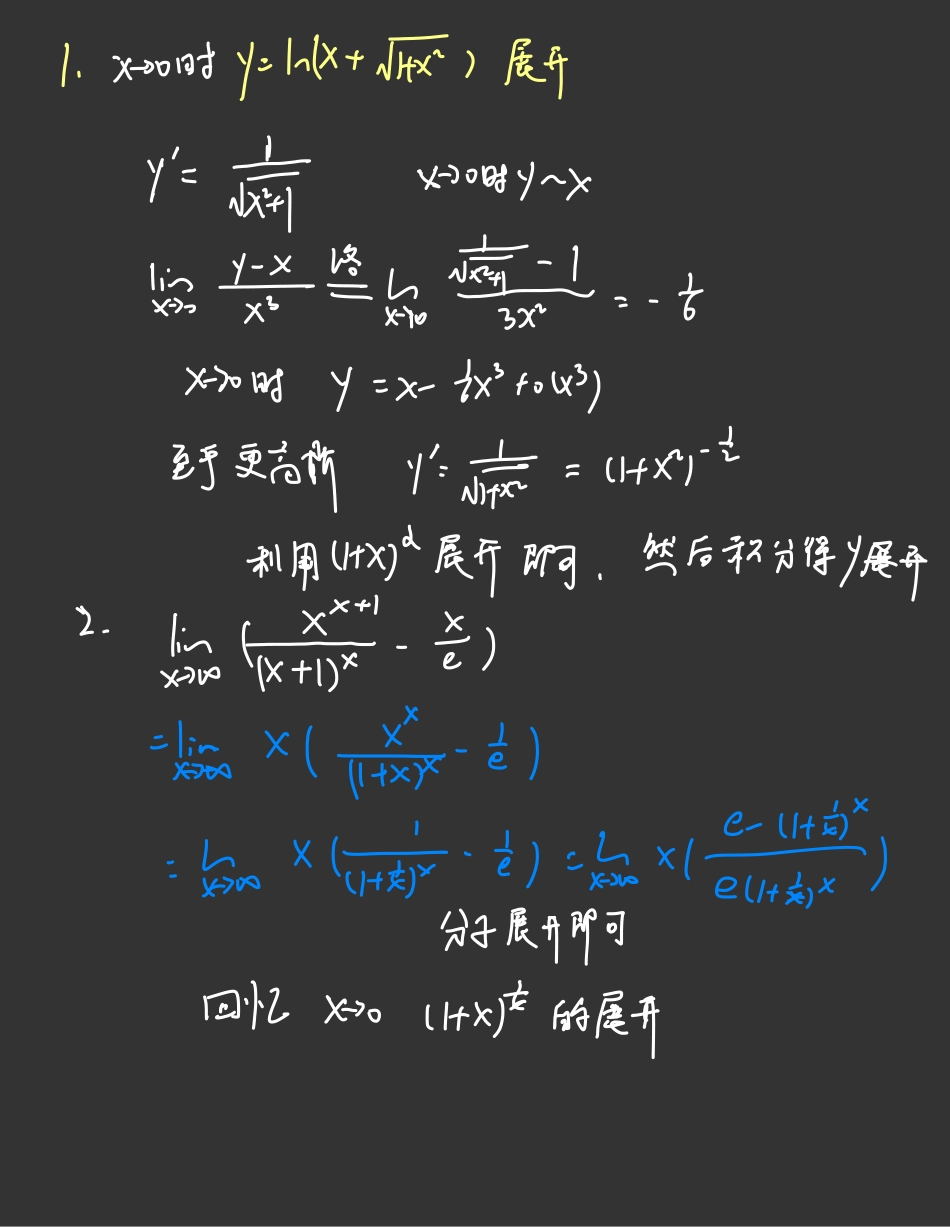 1. x→0时 y=ln(x+√(1+x²)) 展开
y′= 1/√(x²+1)  x→0时 y~x
lim x→0 (y-x)/x³ 洛= lim x→0 (1/√(x²+1) - 1)/(3x²) = -1/6
x→0时 y=x-1/6x³+o(x³)
至于更高阶 y′= 1/√(1+x²) = (1+x²)^(-1/2)
利用(1+x)^α 展开 即可, 然后积分得y展开
2. lim x→∞ (x^(x+1)/(x+1)^x - x/e)
=lim x→∞ x(x^x/(1+x)^x - 1/e)
=lim x→∞ x(1/(1+1/x)^x - 1/e) = lim x→∞ x((e-(1+1/x)^x)/(e(1+1/x)^x))
分子展开即可
回忆 x→0 (1+x)^(1/x) 的展开